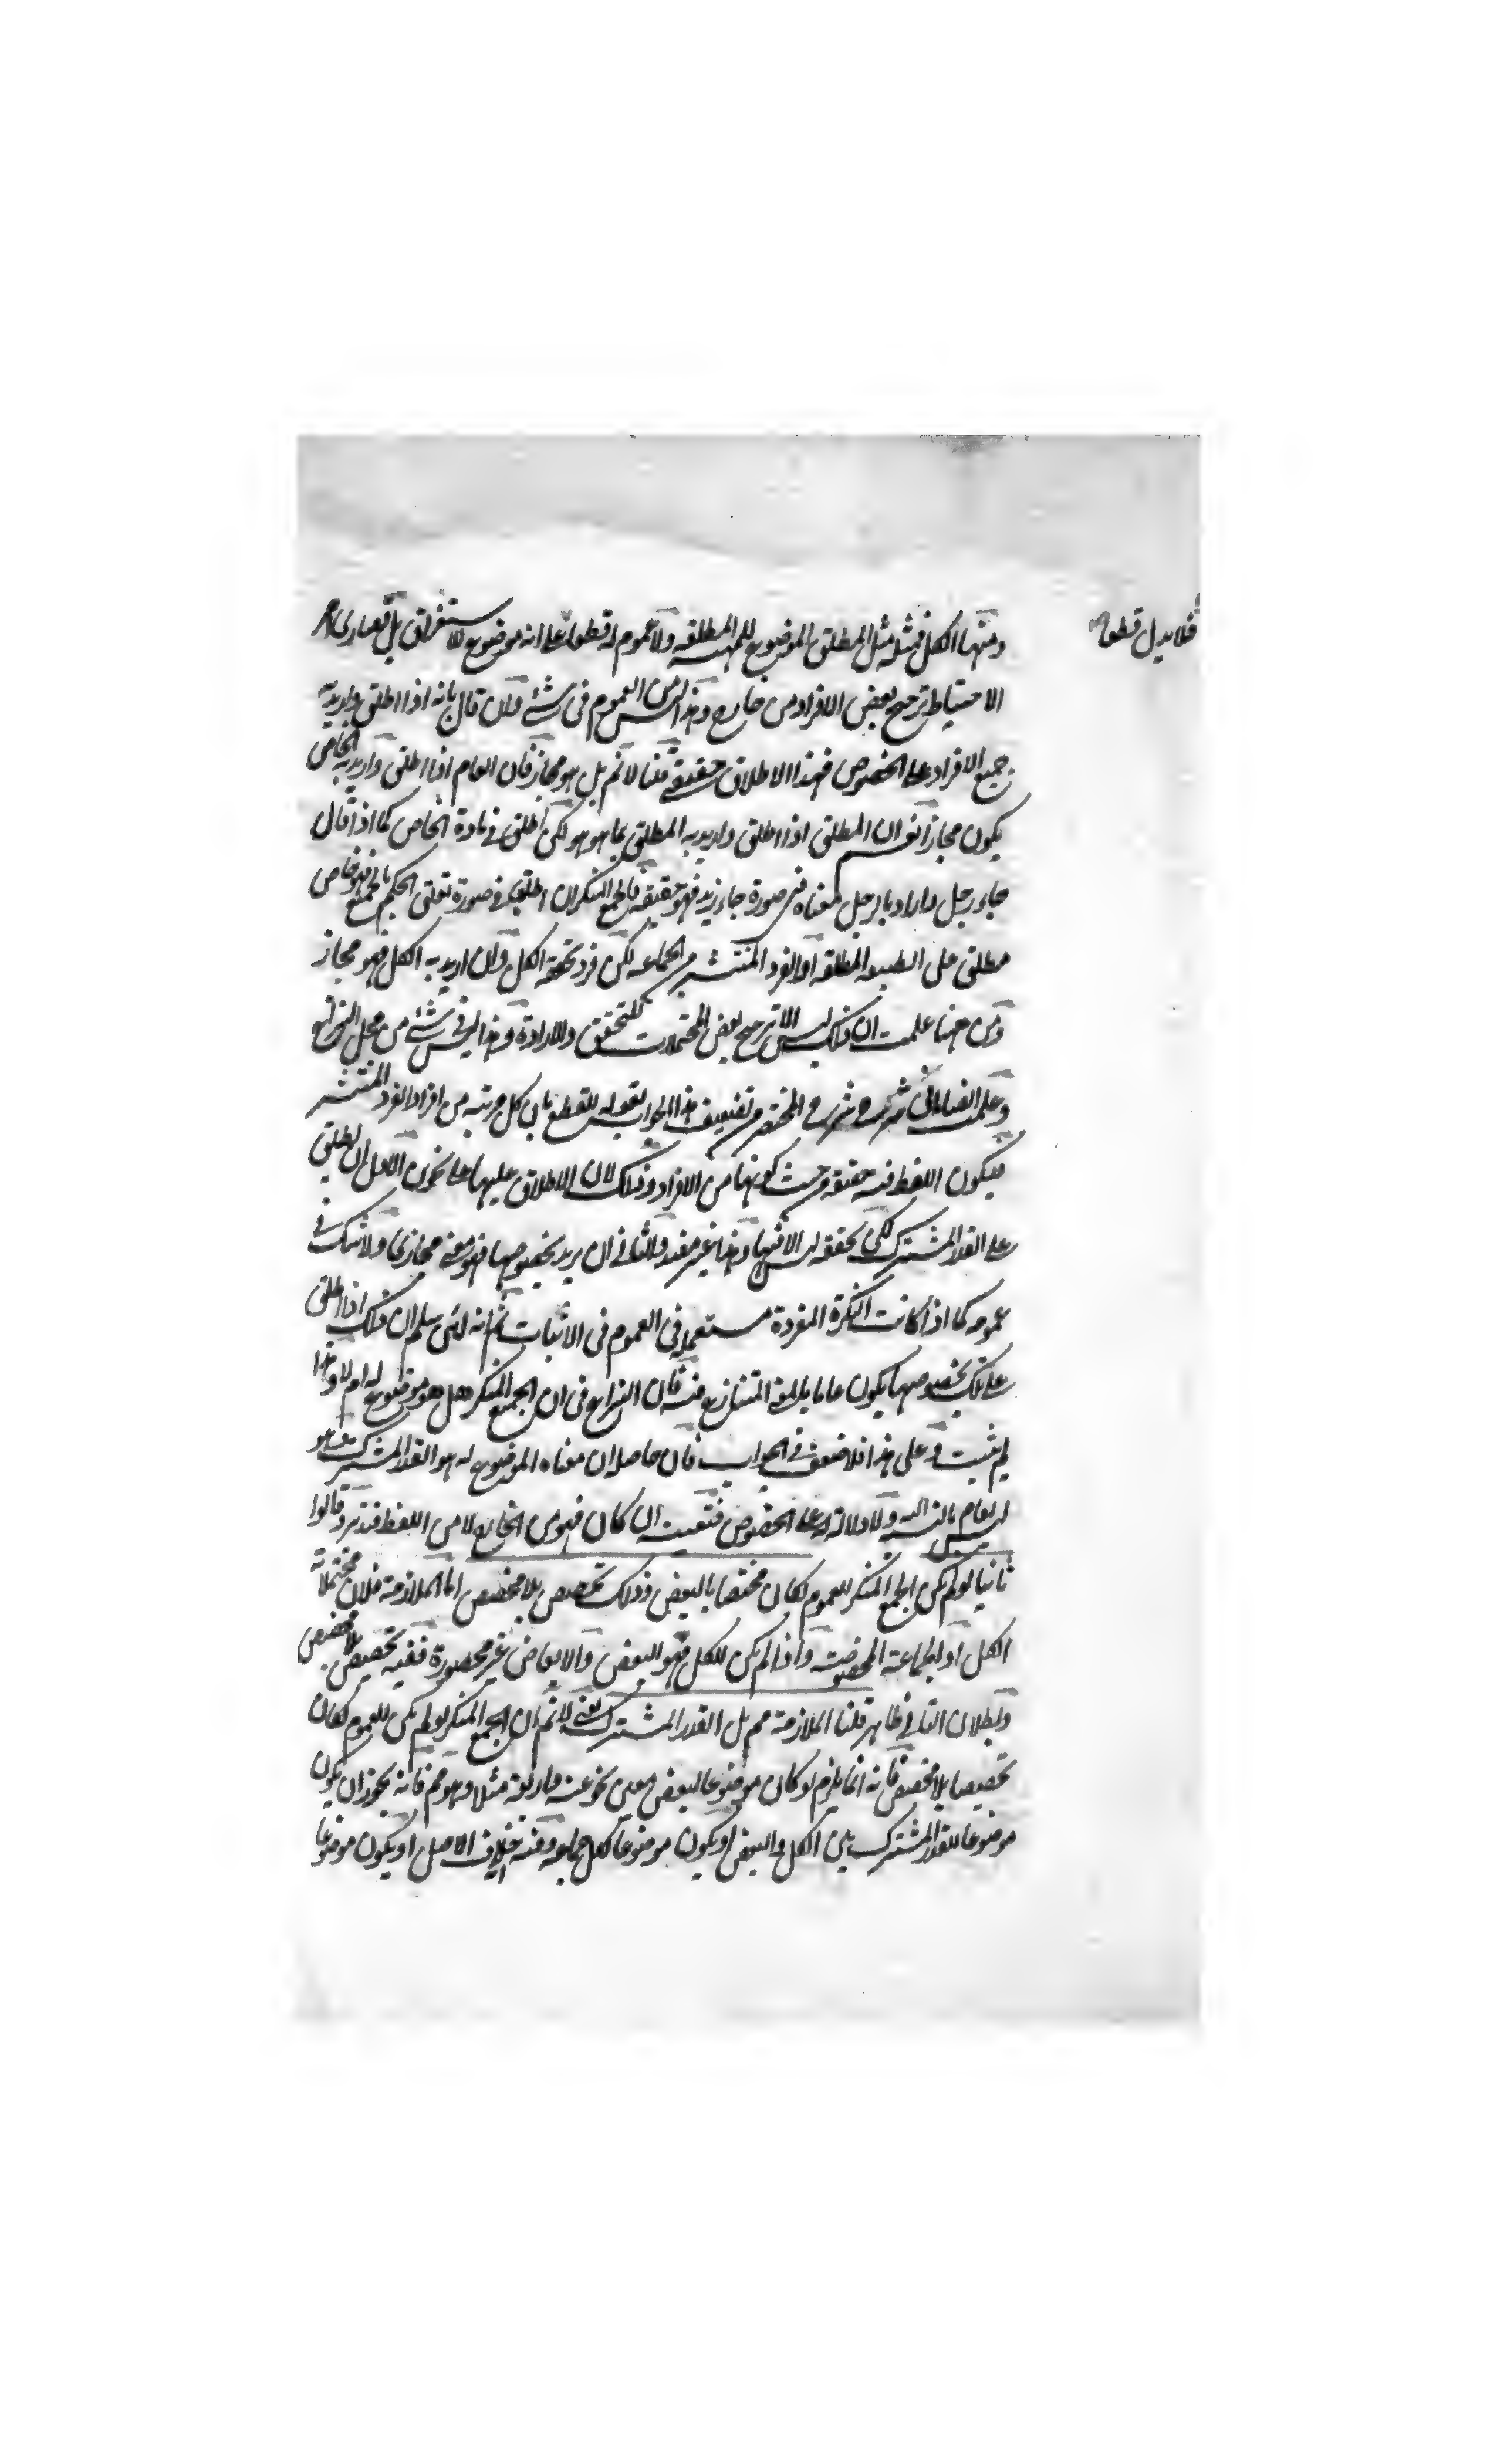 فلا يدل قطعا
ومنها الكل فمثله مثل المطلق الموضوع للمهية المطلقة ولا عموم له قطعا على انه موضوع للاستغراق بل قصارى امر
الاحتياط ترجح بعض الافراد من خارج وهذا ليس من العموم في شئ وان قال بانه اذا اطلق واريد به
جميع الافراد على الخصوص فهذا الاطلاق حقيقة قلنا لا نم بل هو مجاز فان العام اذا اطلق واريد به الخاص
يكون مجازا نعم ان المطلق اذا اطلق واريد به المطلق بما هو هو لكن اطلق في مادة الخاص كما اذا قال
جاء رجل واراد بالرجل معناه في صورة جاء زيد فهو حقيقة فالجمع المنكر ان اطلق في صورة تعلق الحكم بالجميع فهو خاص
مطلق على الطبيعة المطلقة او الفرد المنتشر من الجماعة لكن فرد تحققه الكل وان اريد به الكل فهو مجاز
ومن ههنا علمت ان ذلك ليس الا ترجيح بعض المحتملات للتحقق والارادة وهذا ليس في شئ من محل النزاع
وعلمت ايضا ما في شرح شرح المختصر من تضعيف هذا الجواب بقوله للقطع بان كل مرتبة من افراد الفرد المنتشر
فيكون اللفظ فيه حقيقة من حيث كونها من الافراد وذلك لان الاطلاق عليها على نحوين الاول ان يطلق
على القدر المشترك لكن تحققه ليس الا فيها وهذا غير مفيد والثاني ان يريد بخصوصها فهو معنى مجازي ولا شك في
عمومه كما اذا كانت النكرة المفردة مستعملة في العموم في الاثبات ثم انه لئن سلم ان ذلك اذا اطلق
على تلك بخصوصها يكون عاما بالمعنى المتنازع فيه فان النزاع في ان الجمع المنكر هل هو موضوع له ام لا وهذا
لم يثبت وعلى هذا فلا ضعف في الجواب فان حاصله ان معناه الموضوع له هو القدر المشترك وهو
ليس بعام بالنسبة ولا دلالة له على الخصوص فتعيينه ان كان فهو من الخارج لا من اللفظ فتدبر وقالوا
ثانيا لو لم يكن الجمع المنكر للعموم لكان مختصا بالبعض وذلك تخصيص بلا مخصص اما الملازمة فلان محتملاته
الكل او الجماعة المخصوصة واذا لم يكن للكل فهو للبعض والابعاض غير محصورة ففيه تخصيص بلا مخصص
وبطلان التالي ظاهر قلنا الملازمة مم بل القدر المشترك يعني لا نم ان الجمع المنكر لو لم يكن للعموم لكان
تخصيصا بلا مخصص فانه انما يلزم لو كان موضوعا لبعض معين نحو عشرة واربعة مثلا وهو مم فانه يجوز ان يكون
موضوعا للقدر المشترك بين الكل والبعض او يكون موضوعا لكل جماعة وفيه خلاف الاصل او يكون موضوعا